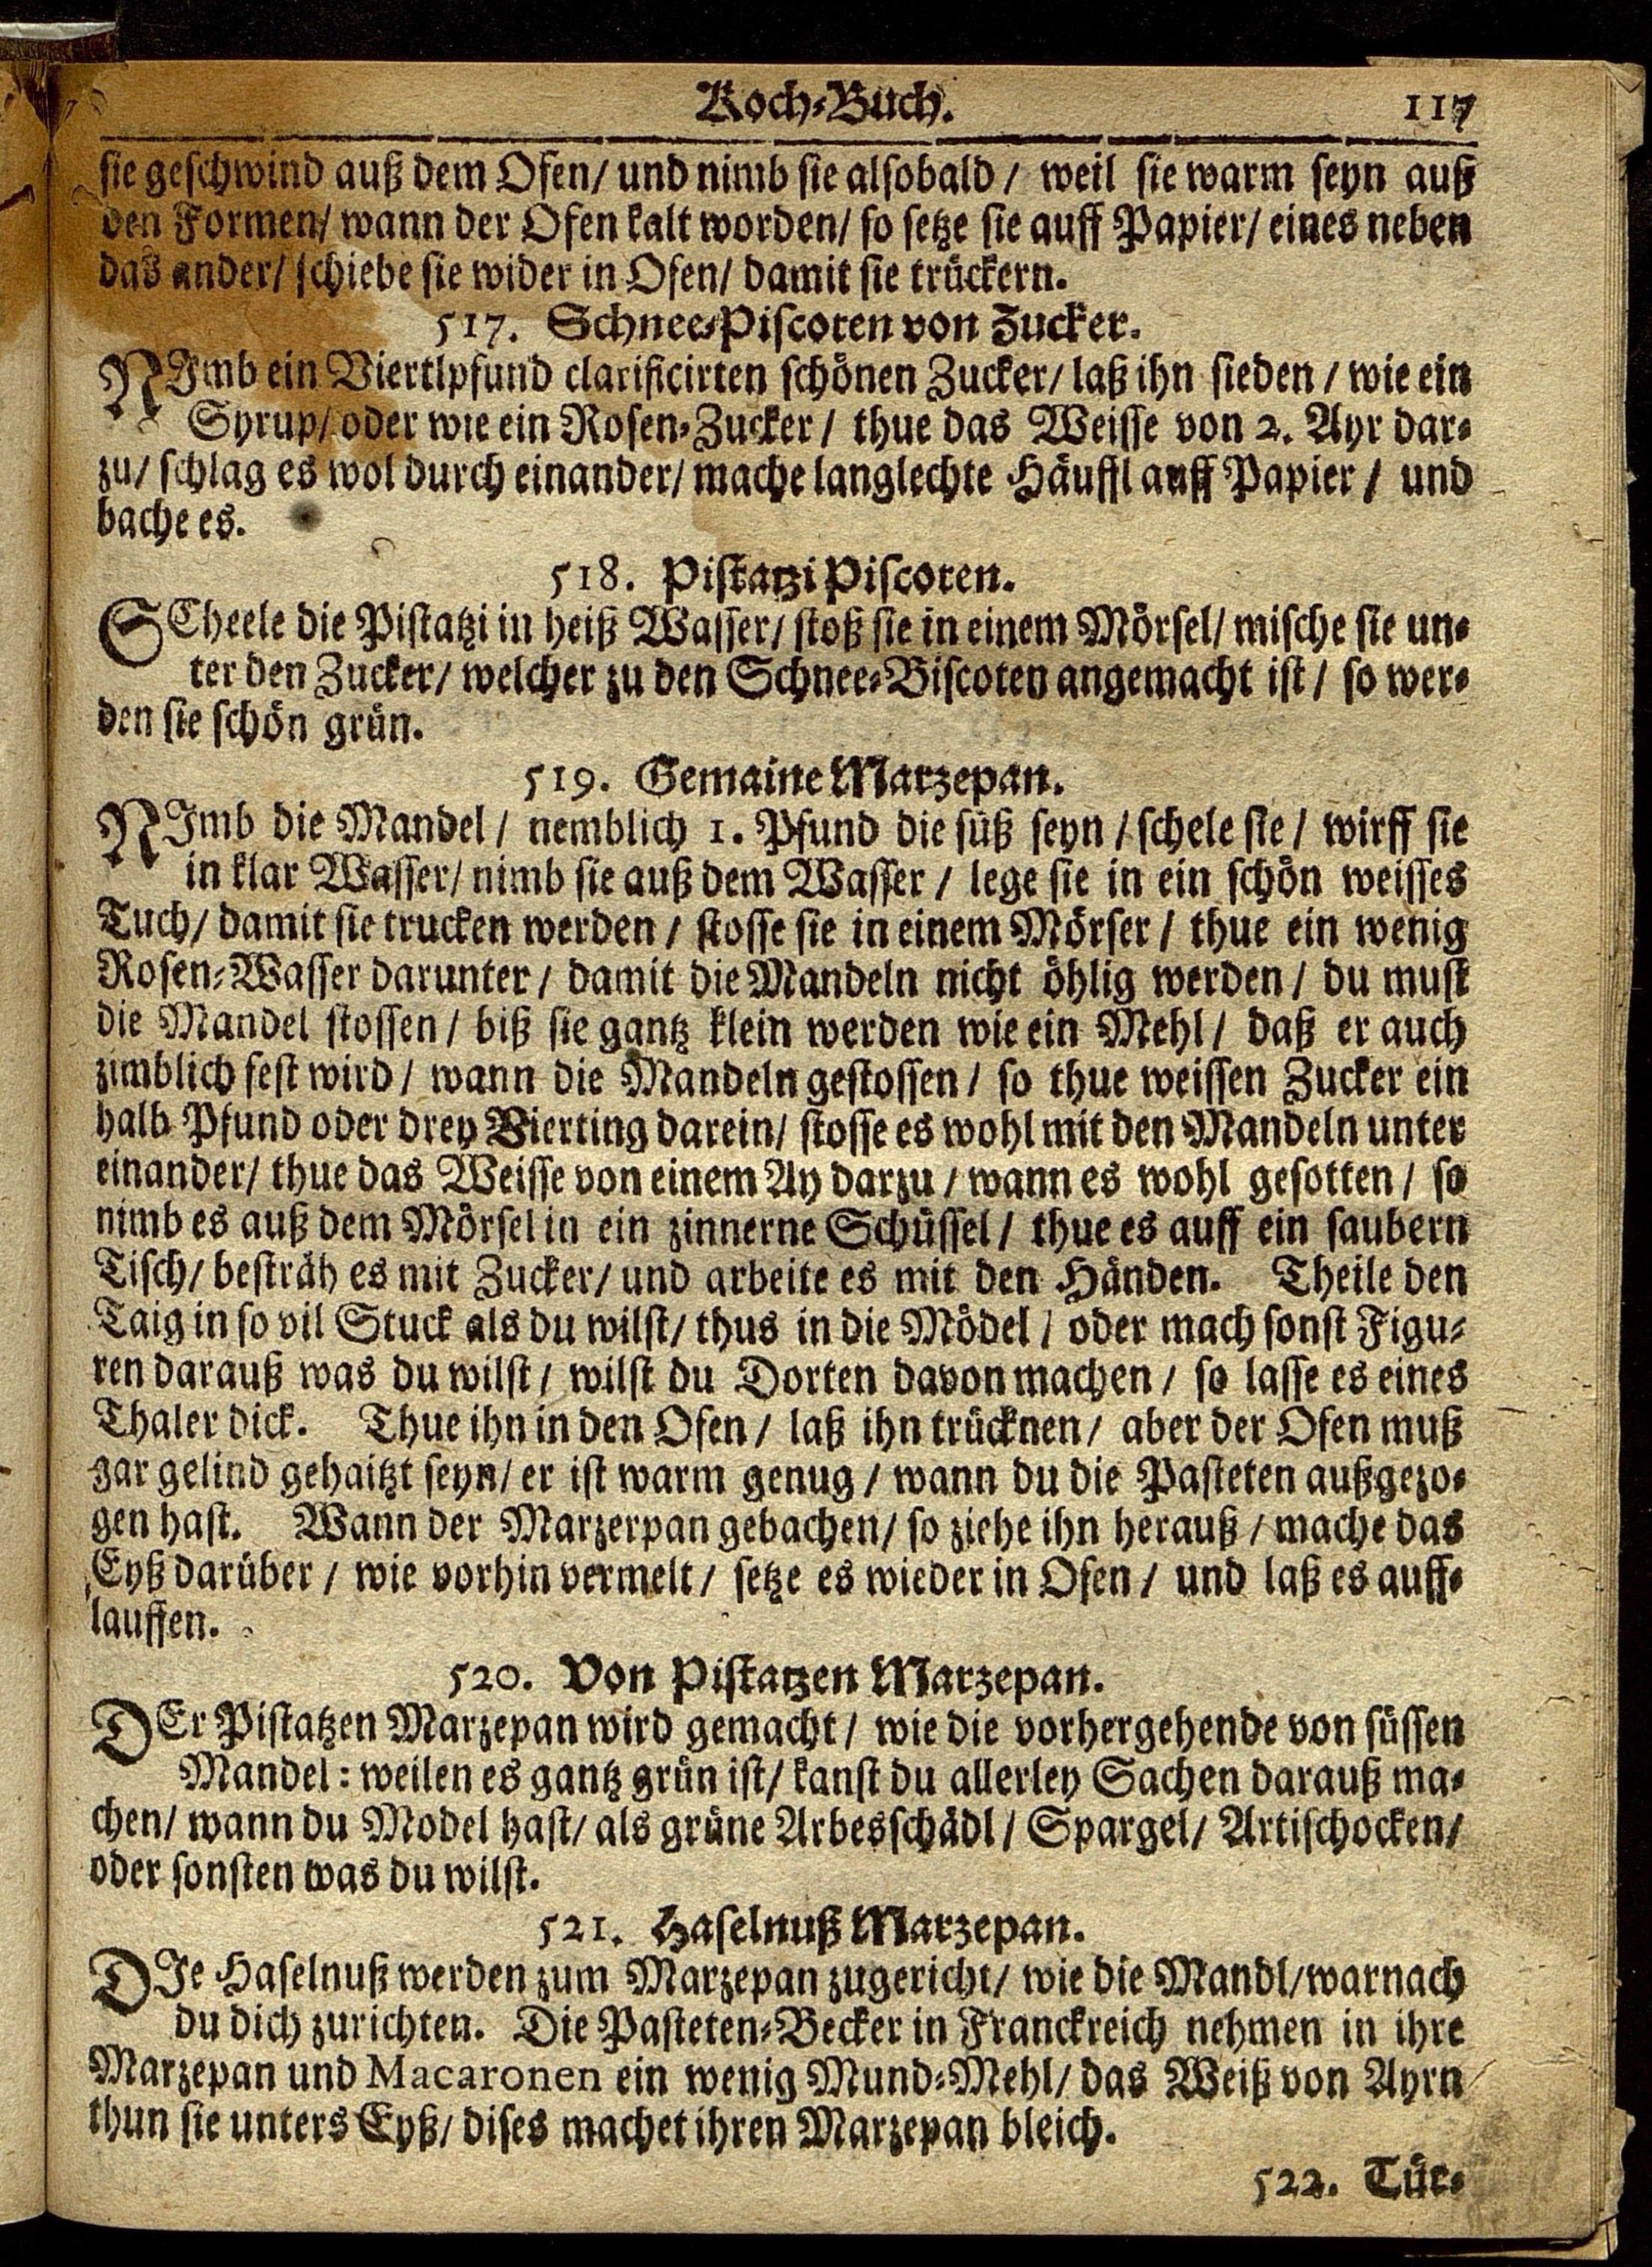 Koch-Buch. 117
sie geschwind auß dem Ofen/ und nimb sie alsobald / weil sie warm seyn auß
den Formen/ wann der Ofen kalt worden/ so setze sie auff Papier/ eines neben
das ander/ schiebe sie wider in Ofen/ damit sie trückern.
517. Schnee-Piscoten von Zucker.
NImb ein Viertlpfund clarificirten schönen Zucker/ laß ihn sieden / wie ein
Syrup/ oder wie ein Rosen-Zucker / thue das Weisse von 2. Ayr dar-
zu/ schlag es wol durch einander/ mache langlechte Häuffl auff Papier / und
bache es.
518. Pistatzi Piscoten.
SCheele die Pistatzi in heiß Wasser/ stoß sie in einem Mörsel/ mische sie un-
ter den Zucker/ welcher zu den Schnee-Biscoten angemacht ist / so wer-
den sie schön grün.
519. Gemaine Marzepan.
NImb die Mandel / nemblich 1. Pfund die süß seyn / schele sie / wirff sie
in klar Wasser/ nimb sie auß dem Wasser / lege sie in ein schön weisses
Tuch/ damit sie trucken werden / stosse sie in einem Mörser / thue ein wenig
Rosen-Wasser darunter / damit die Mandeln nicht öhlig werden / du must
die Mandel stossen / biß sie gantz klein werden wie ein Mehl / daß er auch
zimblich fest wird / wann die Mandeln gestossen / so thue weissen Zucker ein
halb Pfund oder drey Vierting darein/ stosse es wohl mit den Mandeln unter
einander/ thue das Weisse von einem Ay darzu / wann es wohl gesotten / so
nimb es auß dem Mörsel in ein zinnerne Schüssel / thue es auff ein saubern
Tisch/ besträh es mit Zucker/ und arbeite es mit den Händen. Theile den
Taig in so vil Stuck als du wilst/ thus in die Mödel / oder mach sonst Figu-
ren darauß was du wilst / wilst du Dorten davon machen / so lasse es eines
Thaler dick. Thue ihn in den Ofen / laß ihn trücknen/ aber der Ofen muß
gar gelind gehaitzt seyn/ er ist warm genug / wann du die Pasteten außgezo-
gen hast. Wann der Marzerpan gebachen/ so ziehe ihn herauß / mache das
Eyß darüber / wie vorhin vermelt / setze es wieder in Ofen / und laß es auff-
lauffen.
520. Von Pistatzen Marzepan.
DEr Pistatzen Marzepan wird gemacht / wie die vorhergehende von süssen
Mandel: weilen es gantz grün ist/ kanst du allerley Sachen darauß ma-
chen/ wann du Model hast/ als grüne Arbesschädl / Spargel/ Artischocken/
oder sonsten was du wilst.
521. Haselnuß Marzepan.
DIe Haselnuß werden zum Marzepan zugericht/ wie die Mandl/ warnach
du dich zurichten. Die Pasteten-Becker in Franckreich nehmen in ihre
Marzepan und Macaronen ein wenig Mund-Mehl/ das Weiß von Ayrn
thun sie unters Eyß/ dises machet ihren Marzepan bleich.
522. Tür-